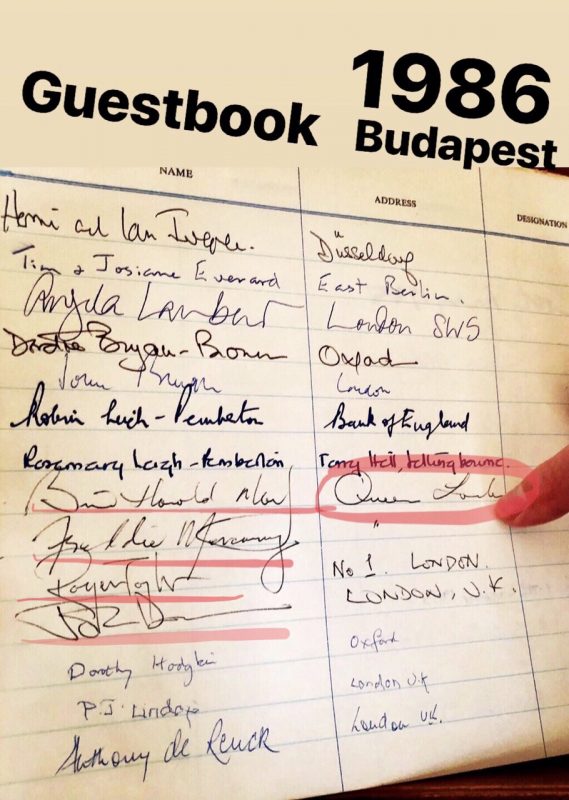 Guestbook 1986
Budapest
NAME ADDRESS DESIGNATION
Henri and Ian Düsseldorf
Tim & Josiane Everard East Berlin.
Angela Lambert London SW5
Deirdre Bryan-Brown Oxford
John London
Robin Leigh-Pemberton Bank of England
Rosemary Leigh-Pemberton Torry Hill, Sittingbourne.
Brian Harold May Queen London
Freddie Mercury "
Roger Taylor No 1. LONDON.
LONDON, U.K.
Dorothy Hodgkin Oxford
P.J. Lindop London UK
Anthony de Reuck London UK.